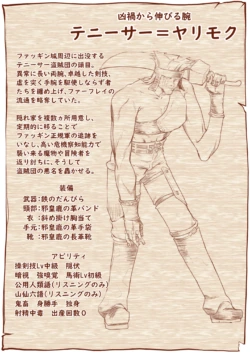 凶禍から伸びる腕
テニーサー＝ヤリモク
ファッギン城周辺に出没する
テニーサー盗賊団の頭目。
異常に長い両腕、卓越した剣技、
虚を突く手腕を駆使しならず者
たちを纏め上げ、ファーフレイの
流通を略奪していた。
隠れ家を複数ヵ所用意し、
定期的に移ることで
ファッギン正規軍の追跡を
いなし、高い危機察知能力で
襲い来る魔物や冒険者を
返り討ちに、そうして
盗賊団の悪名を轟かせる。
装備
武器：鉄のだんびら
頭部：邪皇鹿の革バンド
衣：斜め掛け胸当て
手元：邪皇鹿の革手袋
靴：邪皇鹿の長革靴
アビリティ
操剣技Lv中級　隠伏
暗視　強嗅覚　馬術Lv初級
公用人類語(リスニングのみ)
山仙六語(リスニングのみ)
鬼畜　身勝手　独身
射精中毒　出産回数０